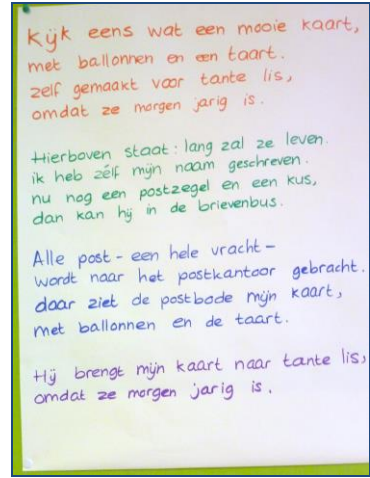 Kijk eens wat een mooie kaart,
met ballonnen en een taart.
zelf gemaakt voor tante lis,
omdat ze morgen jarig is.
Hierboven staat: lang zal ze leven.
ik heb zélf mijn naam geschreven.
nu nog een postzegel en een kus,
dan kan hij in de brievenbus.
Alle post - een hele vracht -
wordt naar het postkantoor gebracht.
daar ziet de postbode mijn kaart,
met ballonnen en de taart.
Hij brengt mijn kaart naar tante lis,
omdat ze morgen jarig is.